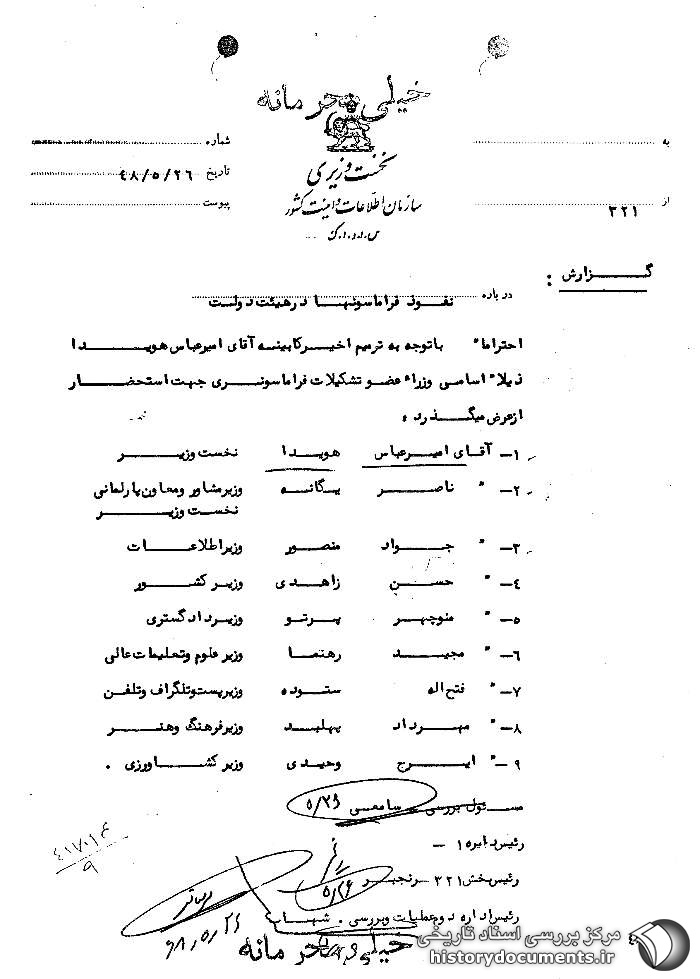 خیلی محرمانه
به
شماره
نخست وزیری
تاریخ ۴۸/۵/۲۶
سازمان اطلاعات و امنیت کشور
از ۳۲۱
پیوست
س.ا.و.ا.ک
گزارش :
درباره نفوذ فراماسونها در هیئت دولت
احتراما" باتوجه به ترمیم اخیر کابینه آقای امیرعباس هویدا
ذیلا" اسامی وزراء عضو تشکیلات فراماسونری جهت استحضار
از عرض میگذرد ،
۱- آقای امیرعباس هویدا نخست وزیر
۲- " ناصر یگانه وزیرمشاور ومعاون پارلمانی
نخست وزیر
۳- " جواد منصور وزیراطلاعات
۴- " حسن زاهدی وزیر کشور
۵- " منوچهر پرتو وزیردادگستری
۶- " مجید رهنما وزیر علوم وتعلیمات عالی
۷- " فتح اله ستوده وزیرپست وتلگراف وتلفن
۸- " مهرداد پهلبد وزیرفرهنگ وهنر
۹- " ایرج وحیدی وزیر کشاورزی .
مسئول بررسی - سامعسی ۵/۲۶
رئیس دایره ۱ -
رئیس بخش ۳۲۱ - رنجبر ۵/۲۶
رئیس اداره دوعملیات وبررسی . شهاب
۴۸/۵/۲۶
خیلی محرمانه
مرکز بررسی اسناد تاریخی
historydocuments.ir